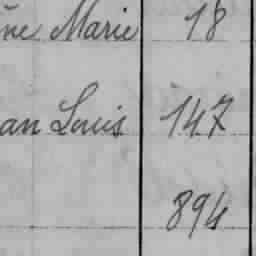 ne Marie 18
an Louis 147
894